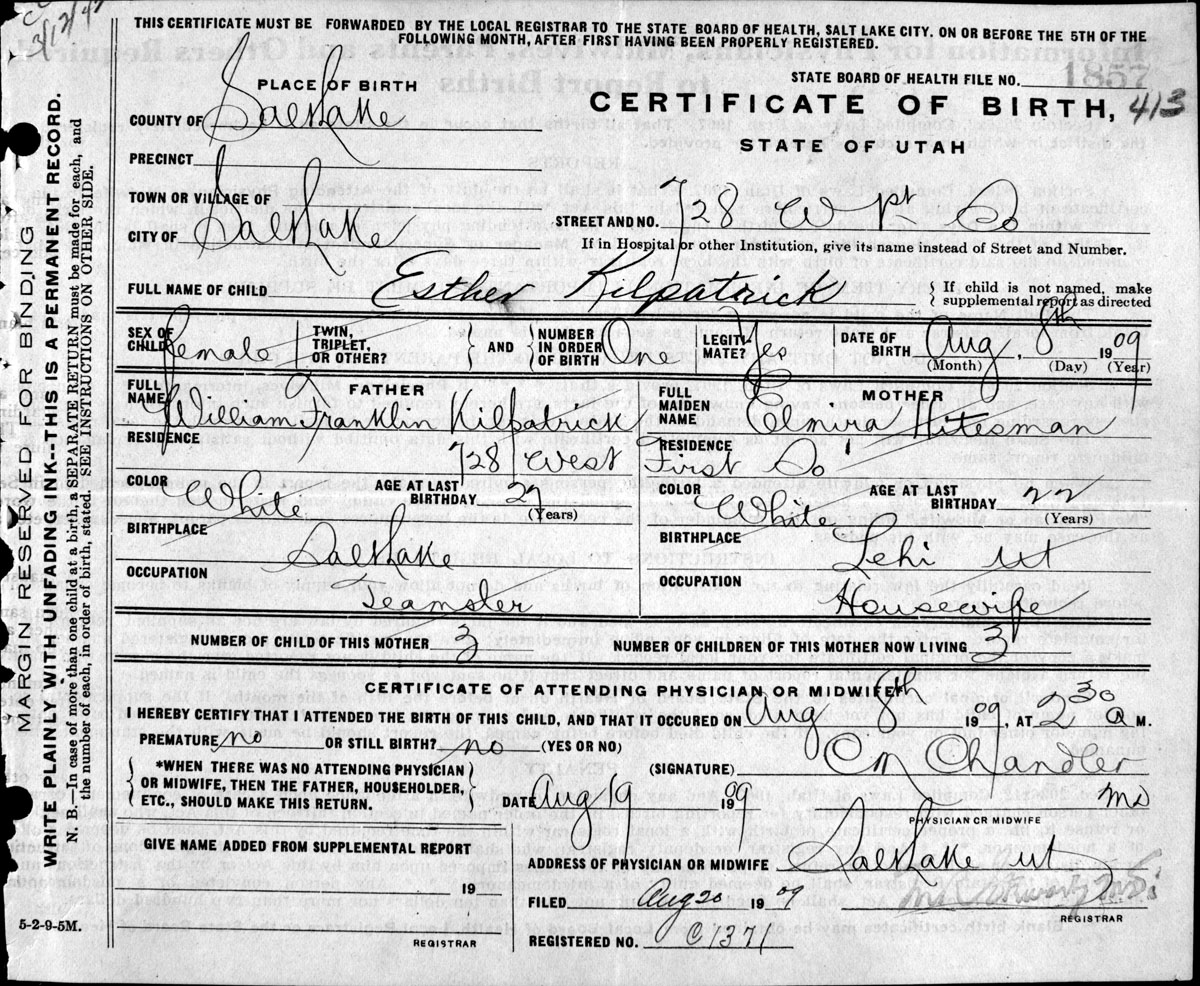 2/12/42
THIS CERTIFICATE MUST BE FORWARDED BY THE LOCAL REGISTRAR TO THE STATE BOARD OF HEALTH, SALT LAKE CITY. ON OR BEFORE THE 5TH OF THE
FOLLOWING MONTH, AFTER FIRST HAVING BEEN PROPERLY REGISTERED.
PLACE OF BIRTH
STATE BOARD OF HEALTH FILE NO.
CERTIFICATE OF BIRTH, 413
STATE OF UTAH
COUNTY OF Salt Lake
PRECINCT
TOWN OR VILLAGE OF
CITY OF Salt Lake
STREET AND NO. 728 W 1st So
If in Hospital or other Institution, give its name instead of Street and Number.
FULL NAME OF CHILD Esther Kilpatrick
If child is not named, make
supplemental report as directed
SEX OF CHILD Female
TWIN, TRIPLET, OR OTHER? AND NUMBER IN ORDER OF BIRTH One
LEGITIMATE? Yes
DATE OF BIRTH Aug, 8th 1909
(Month) (Day) (Year)
FATHER
FULL NAME William Franklin Kilpatrick
RESIDENCE
728 West
COLOR White AGE AT LAST BIRTHDAY 27 (Years)
BIRTHPLACE
Salt Lake
OCCUPATION
Teamster
MOTHER
FULL MAIDEN NAME Elmira Hitesman
RESIDENCE
First So
COLOR White AGE AT LAST BIRTHDAY 22 (Years)
BIRTHPLACE
Lehi Ut
OCCUPATION
Housewife
NUMBER OF CHILD OF THIS MOTHER 3 NUMBER OF CHILDREN OF THIS MOTHER NOW LIVING 3
CERTIFICATE OF ATTENDING PHYSICIAN OR MIDWIFE*
I HEREBY CERTIFY THAT I ATTENDED THE BIRTH OF THIS CHILD, AND THAT IT OCCURED ON Aug 8th 1909, AT 2 30 a M.
PREMATURE no OR STILL BIRTH? no (YES OR NO)
*WHEN THERE WAS NO ATTENDING PHYSICIAN
OR MIDWIFE, THEN THE FATHER, HOUSEHOLDER,
ETC., SHOULD MAKE THIS RETURN.
(SIGNATURE) Chandler
DATE Aug 19 1909 MD
PHYSICIAN OR MIDWIFE
GIVE NAME ADDED FROM SUPPLEMENTAL REPORT
19
REGISTRAR
ADDRESS OF PHYSICIAN OR MIDWIFE Salt Lake ut
FILED Aug 20 1909
REGISTRAR
REGISTERED NO. C1371
5-2-9-5M.
MARGIN RESERVED FOR BINDING
WRITE PLAINLY WITH UNFADING INK--THIS IS A PERMANENT RECORD.
N. B.—In case of more than one child at a birth, a SEPARATE RETURN must be made for each, and
the number of each, in order of birth, stated. SEE INSTRUCTIONS ON OTHER SIDE.